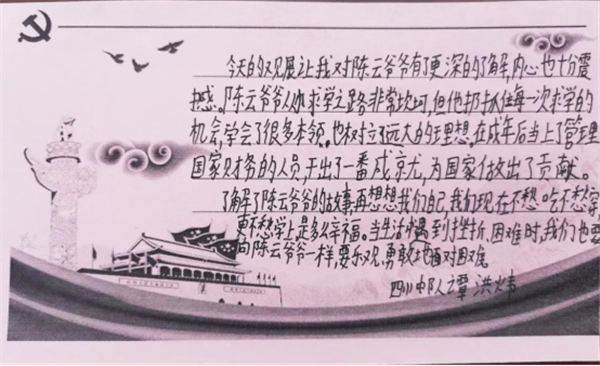 今天的观展让我对陈云爷爷有了更深的了解,内心也十分震
撼。陈云爷爷从小求学之路非常坎坷,但他扔抓住每一次求学的
机会,学会了很多本领,也树立了远大的理想。在成年后当上了管理
国家财务的人员,干出了一番成就,为国家做出了贡献。
了解了陈云爷爷的故事,再想想我们自己,我们现在不愁吃不愁穿,
更不愁学上是多么幸福。当生活中遇到挫折,困难时,我们也要
向陈云爷爷一样,要乐观,勇敢地面对困难。
四川